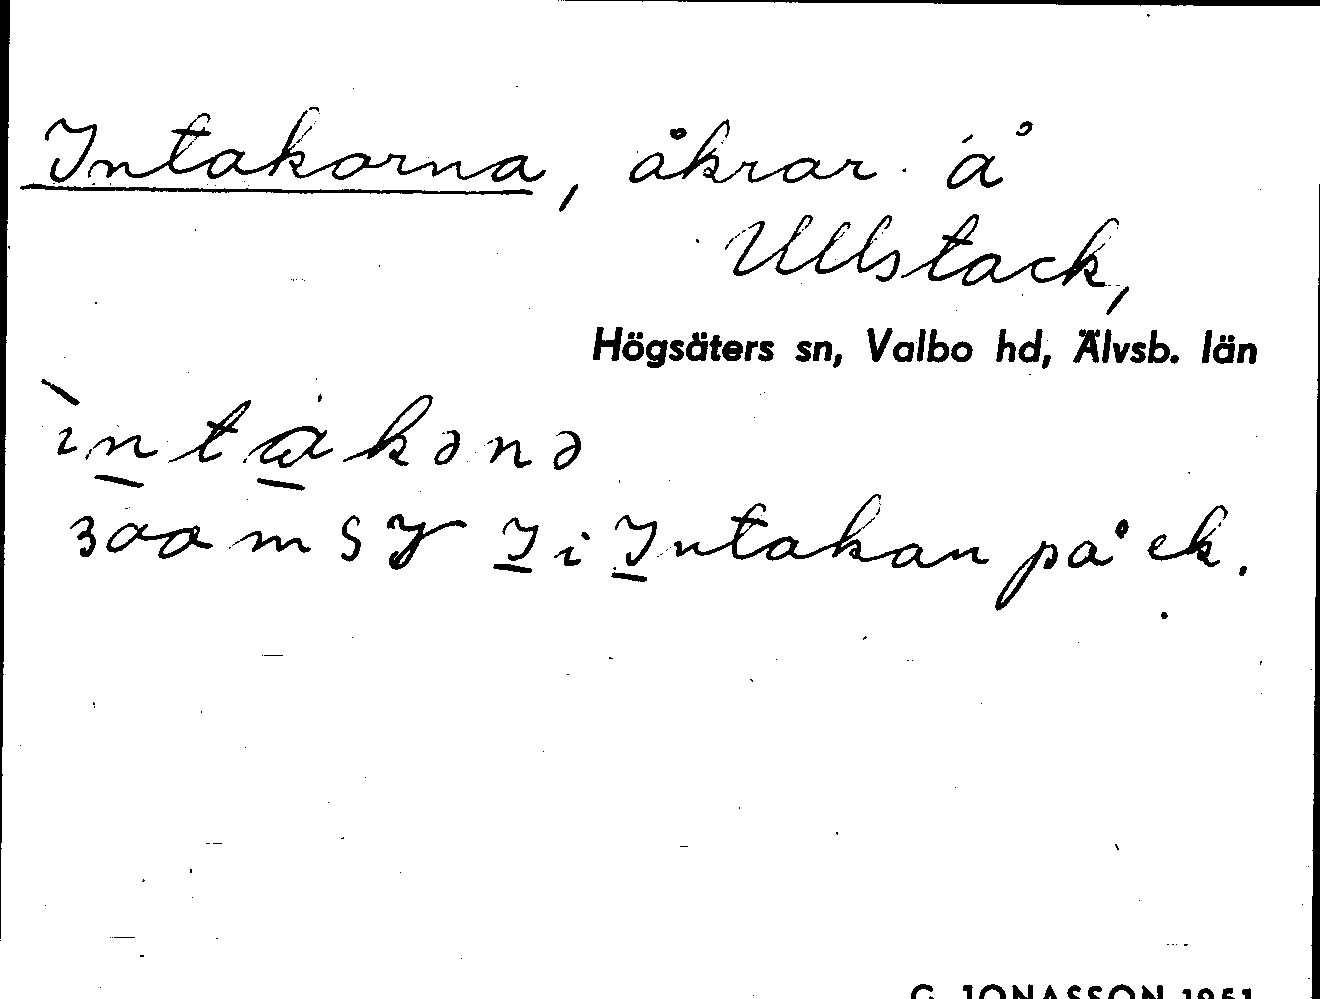 Intakorna, åkrar å
Ullstack,
Högsäters sn, Valbo hd, Älvsb. län
ìntakənə
300 m SV I i Intakan på ek.
G. JONASSON 1951